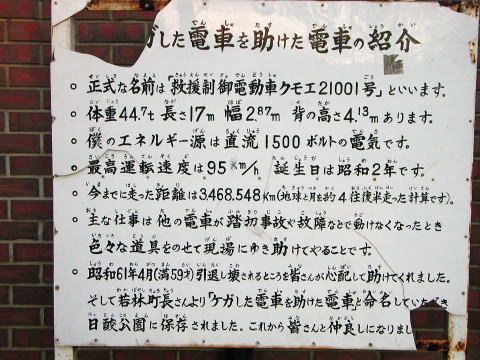 ガした電車を助けた電車の紹介
○ 正式な名前は「救援制御電動車クモエ21001号」といいます。
○ 体重44.7t 長さ17m 幅2.87m 背の高さ4.13mあります。
○ 僕のエネルギー源は直流1500ボルトの電気です。
○ 最高運転速度は95Km/h 誕生日は昭和2年です。
○ 今までに走った距離は3,468,548Km(地球と月を約4往復半走った計算です)。
○ 主な仕事は他の電車が踏切事故や故障などで動けなくなったとき
色々な道具をのせて現場にゆき助けてやることです。
○ 昭和61年4月(満59才)引退し壊されるところを皆さんが心配して助けてくれました。
そして若林町長さんより「ケガした電車を助けた電車」と命名していただき
日酸公園に保存されました。これから皆さんと仲良しになりまし